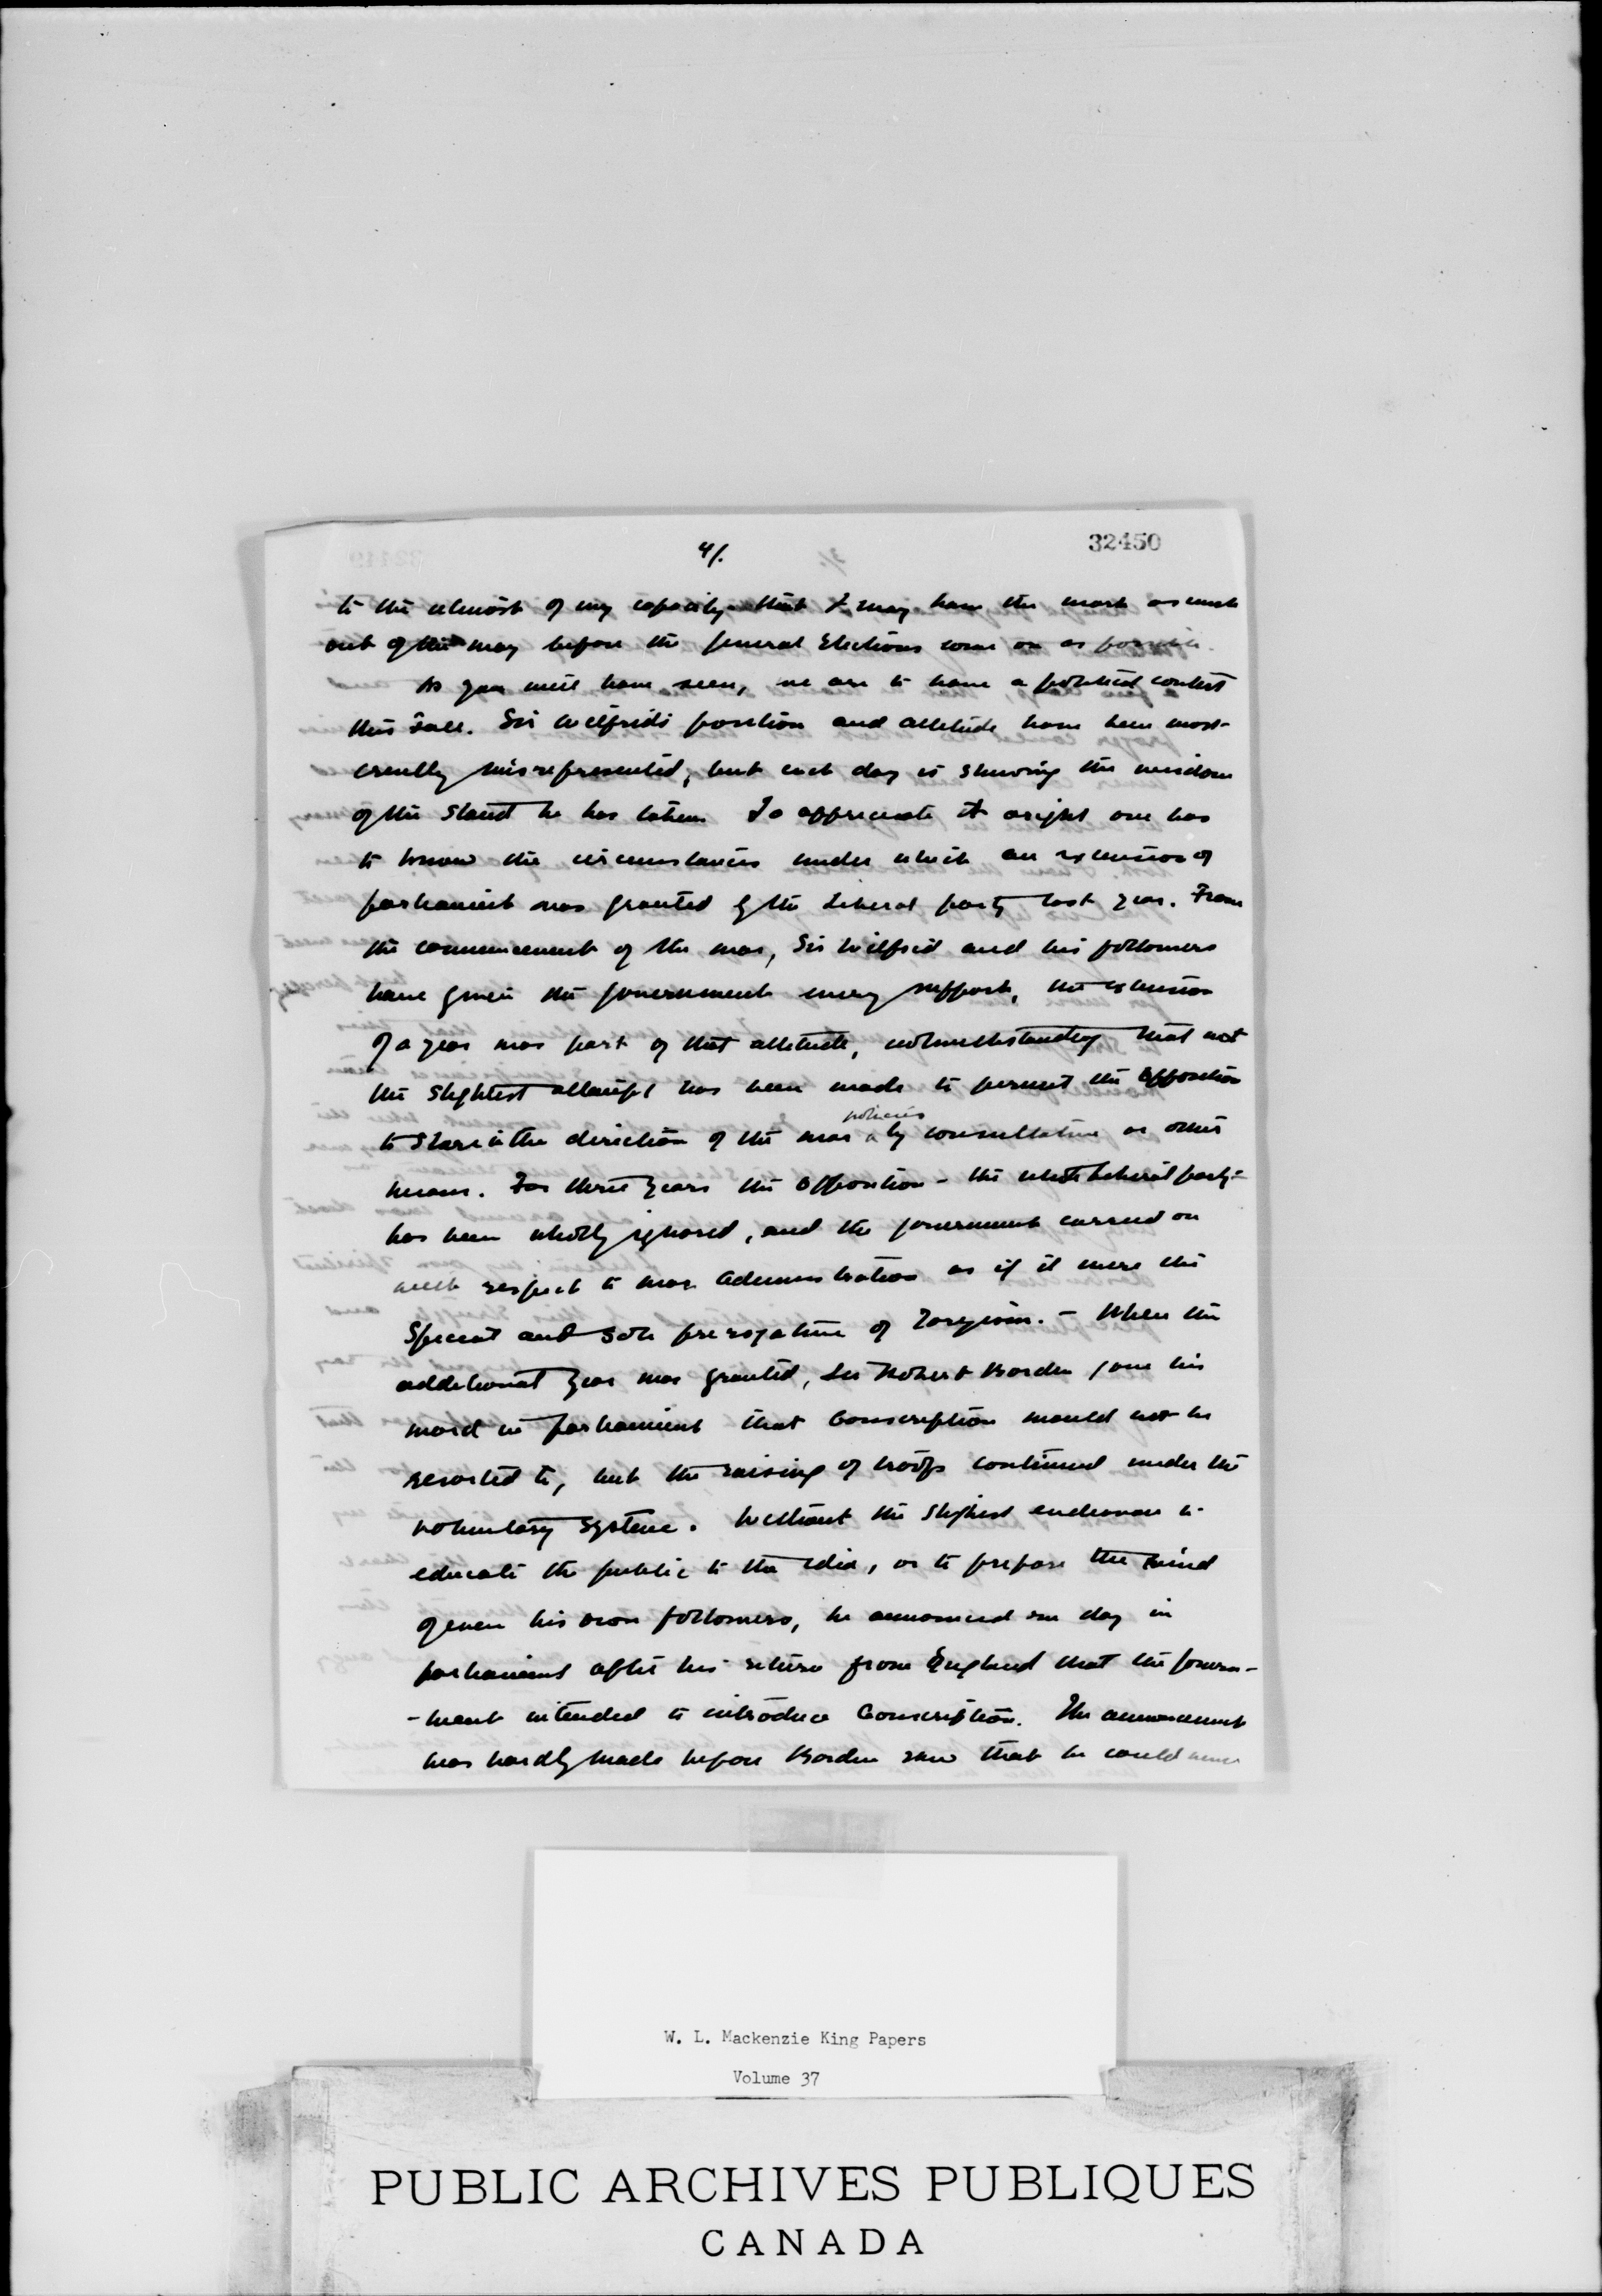 4/.
32450
to the utmost of my capacity that I may have the work as much
out of the way before the general Elections come on as possible.
As you will have seen, we are to have a political contest
this Fall. Sir Wilfrid's position and attitude have been most
cruelly misrepresented, but each day is shewing the wisdom
of the stand he has taken. To appreciate it aright one has
to know the circumstances under which an extension of
parliament was granted by the Liberal party last year. From
the commencement of the war, Sir Wilfrid and his followers
have given the government every support, the extension
of a year was part of that attitude, notwithstanding that not
the slightest attempt has been made to permit the Opposition
to share in the direction of the war policies by consultation or other
means. For three years the Opposition - the whole Liberal party -
has been wholly ignored, and the government carried on
with respect to war administration as if it were the
special and sole prerogative of Toryism. - When the
additional year was granted, Sir Robert Borden gave his
word in parliament that Conscription would not be
resorted to, but the raising of troops continued under the
voluntary system. Without the slightest endeavour to
educate the public to the idea, or to prepare the mind
of even his own followers, he announced one day in
parliament after his return from England that the govern-
-ment intended to introduce Conscription. The announcement
was hardly made before Borden saw that he could never
W. L. Mackenzie King Papers
Volume 37
PUBLIC ARCHIVES PUBLIQUES
CANADA